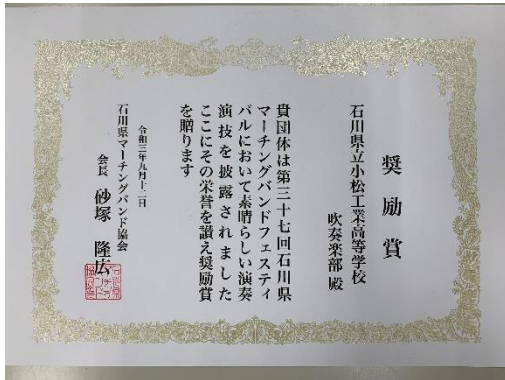 奨励賞
石川県立小松工業高等学校
吹奏楽部 殿
貴団体は第三十七回石川県
マーチングバンドフェスティ
バルにおいて素晴らしい演奏
演技を披露されました
ここにその栄誉を讃え奨励賞
を贈ります
令和三年九月十二日
石川県マーチングバンド協会
会長 砂塚 隆広